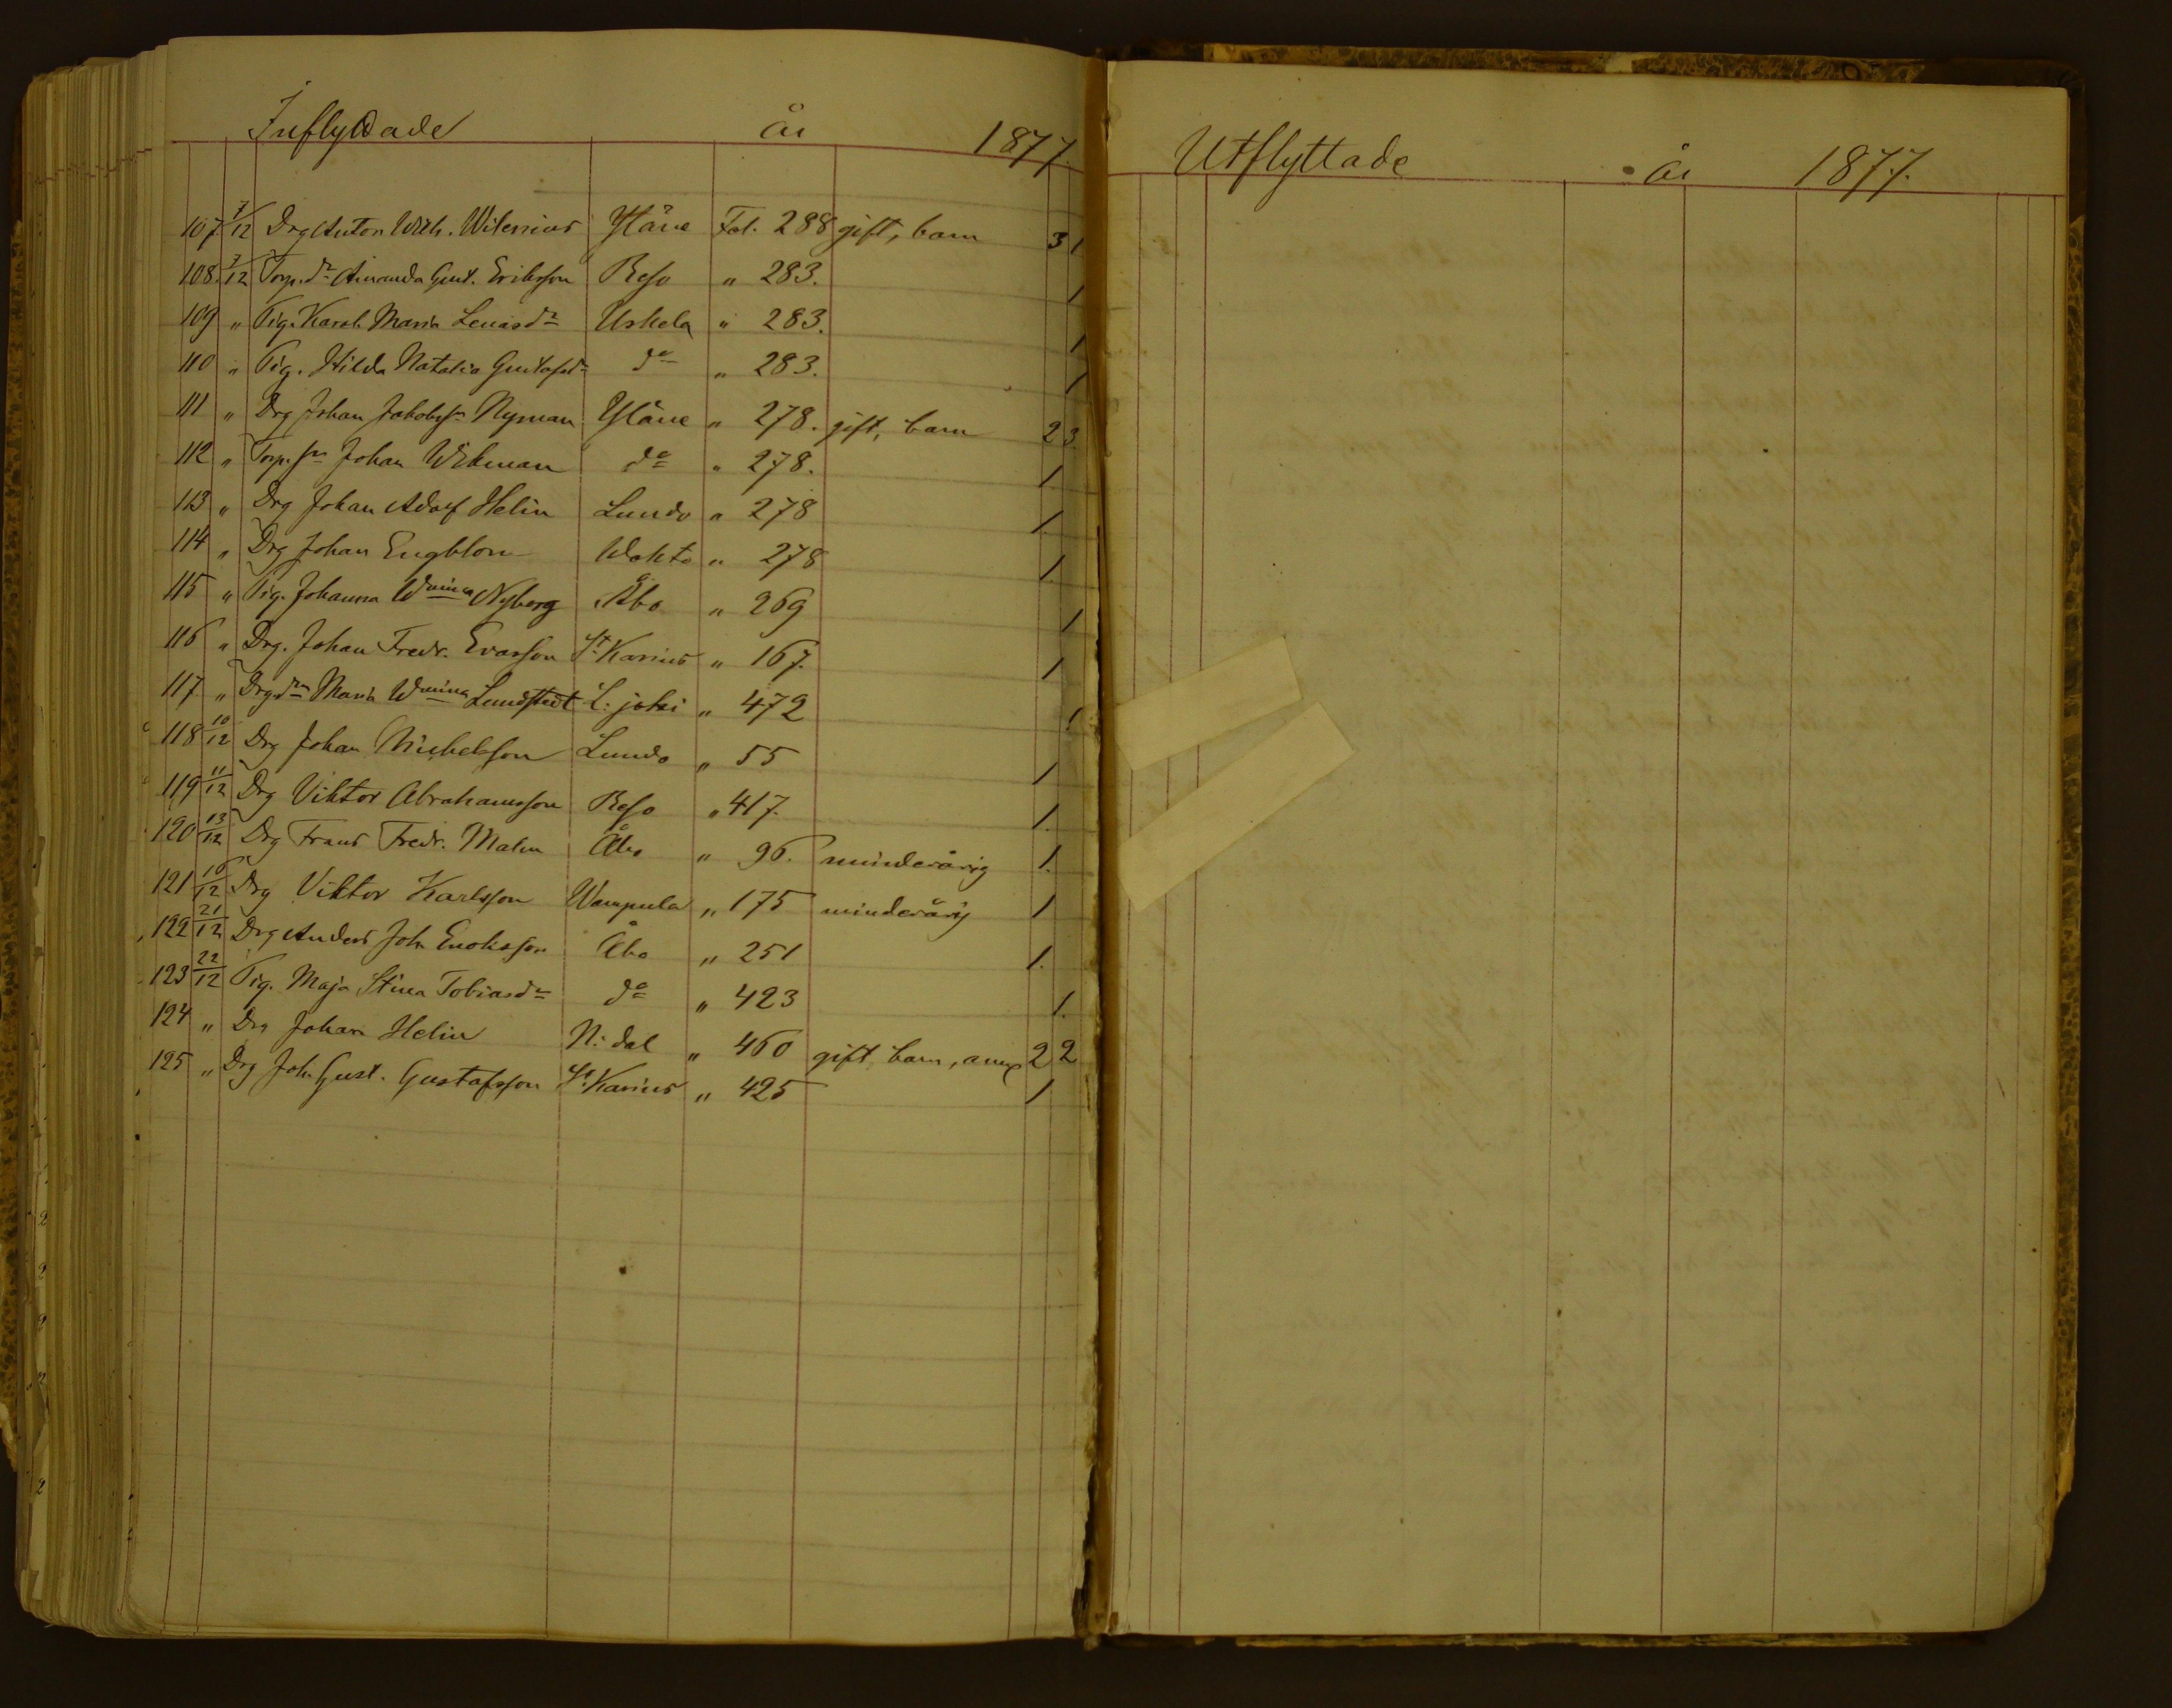 Inflyttade år 1877.
107 7/12 Drg Anton Wilh. Wilenius Yläne Fol. 288 gift, barn 3 1
108. 7/12 Torp. dr Amanda Gust. Eriksson Reso " 283. 1
109 " Pig. Karol. Maria Lenasdr Uskela " 283. 1
110 " Pig. Hilda Natalia Gustafsdr do " 283. 1
111 " Drg Johan Jakobsson Nyman Yläne " 278. gift, barn 2 3
112 " Torp. sn Johan Wikman do " 278. 1
113 " Drg Johan Adolf Helin Lundo " 278 1
114 " Drg Johan Engblom Wahto " 278 1
115 " Pig. Johanna Wmina Nyberg Åbo " 269 1
116 " Drg. Johan Fredr. Evasson St Karins " 167. 1
117. " Drg dr Maria Wmina Lundstedt L: joki " 472 1
118 10/12 Drg Johan Michelsson Lundo " 55 1
119 11/12 Drg Viktor Abrahamsson Reso " 417. 1.
120 13/12 Drg Frans Fredr. Malm Åbo " 96. minderårig 1.
121 16/12 Drg Viktor Karlsson Wampula " 175 minderårig 1
122 21/12 Drg Anders Joh. Enoksson Åbo " 251 1.
123 22/12 Pig. Maja Stina Tobiasdr do " 423 1.
124 " Drg Johan Helin N: dal " 460 gift, barn, 2 2
125 " Drg Joh. Gust. Gustafsson St Karins " 425 1
Utflyttade år 1877.